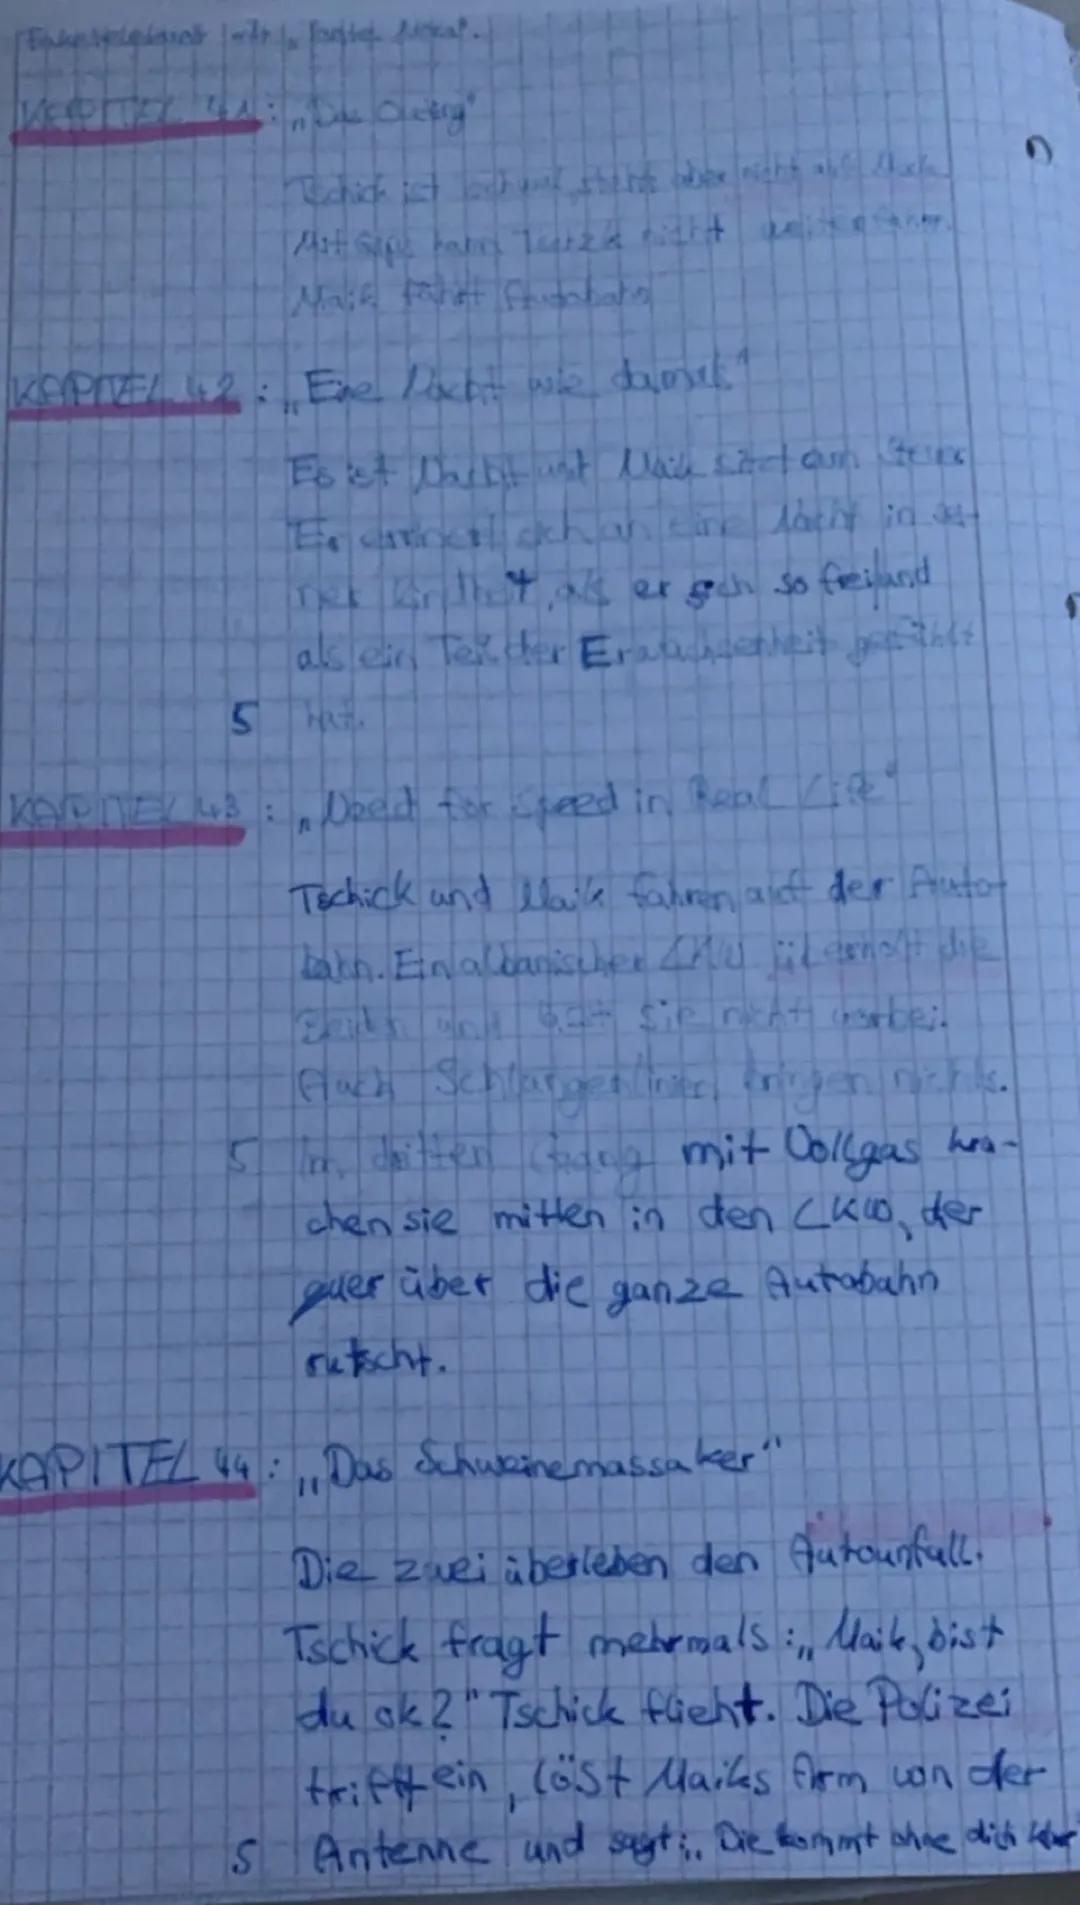 KAPITEL 41: „Das Outing"
Tschick ist schwul, steht aber nicht auf Maik.
Mit Gips kann Tschick nicht weiterfahren.
Maik fährt Autobahn
KAPITEL 42: „Eine Nacht wie damals"
Es ist Nacht und Maik sitzt am Steuer
Er erinnert sich an eine Nacht in sei-
ner Kindheit, als er sich so frei und
als ein Teil der Erwachsenheit gefühlt
5 hat.
KAPITEL 43: „Need for Speed in Real Life"
Tschick und Maik fahren auf der Auto-
bahn. Ein albanischer LKW überholt die
und lässt sie nicht vorbei.
Auch Schlangenlinien bringen nichts.
5 Im dritten Gang mit Vollgas kra-
chen sie mitten in den LKW, der
quer über die ganze Autobahn
rutscht.
KAPITEL 44: „Das Schweinemassaker"
Die zwei überleben den Autounfall.
Tschick fragt mehrmals: „Maik, bist
du ok?" Tschick flieht. Die Polizei
trifft ein, löst Maiks Arm von der
5 Antenne und sagt: „Die kommt ohne dich klar"